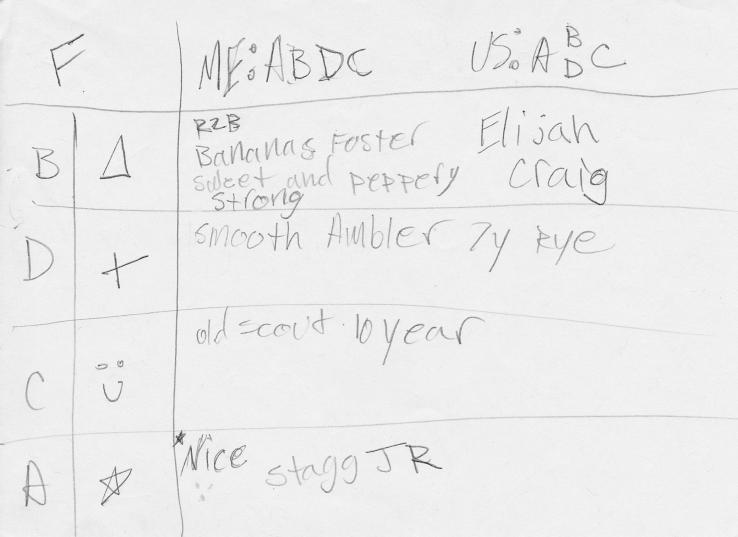 F ME: ABDC US: A B D C
B R2B
Bananas Foster Elijah
sweet and peppery Craig
strong
D Smooth Ambler 7y Rye
C old scout 10 year
A Nice Stagg JR